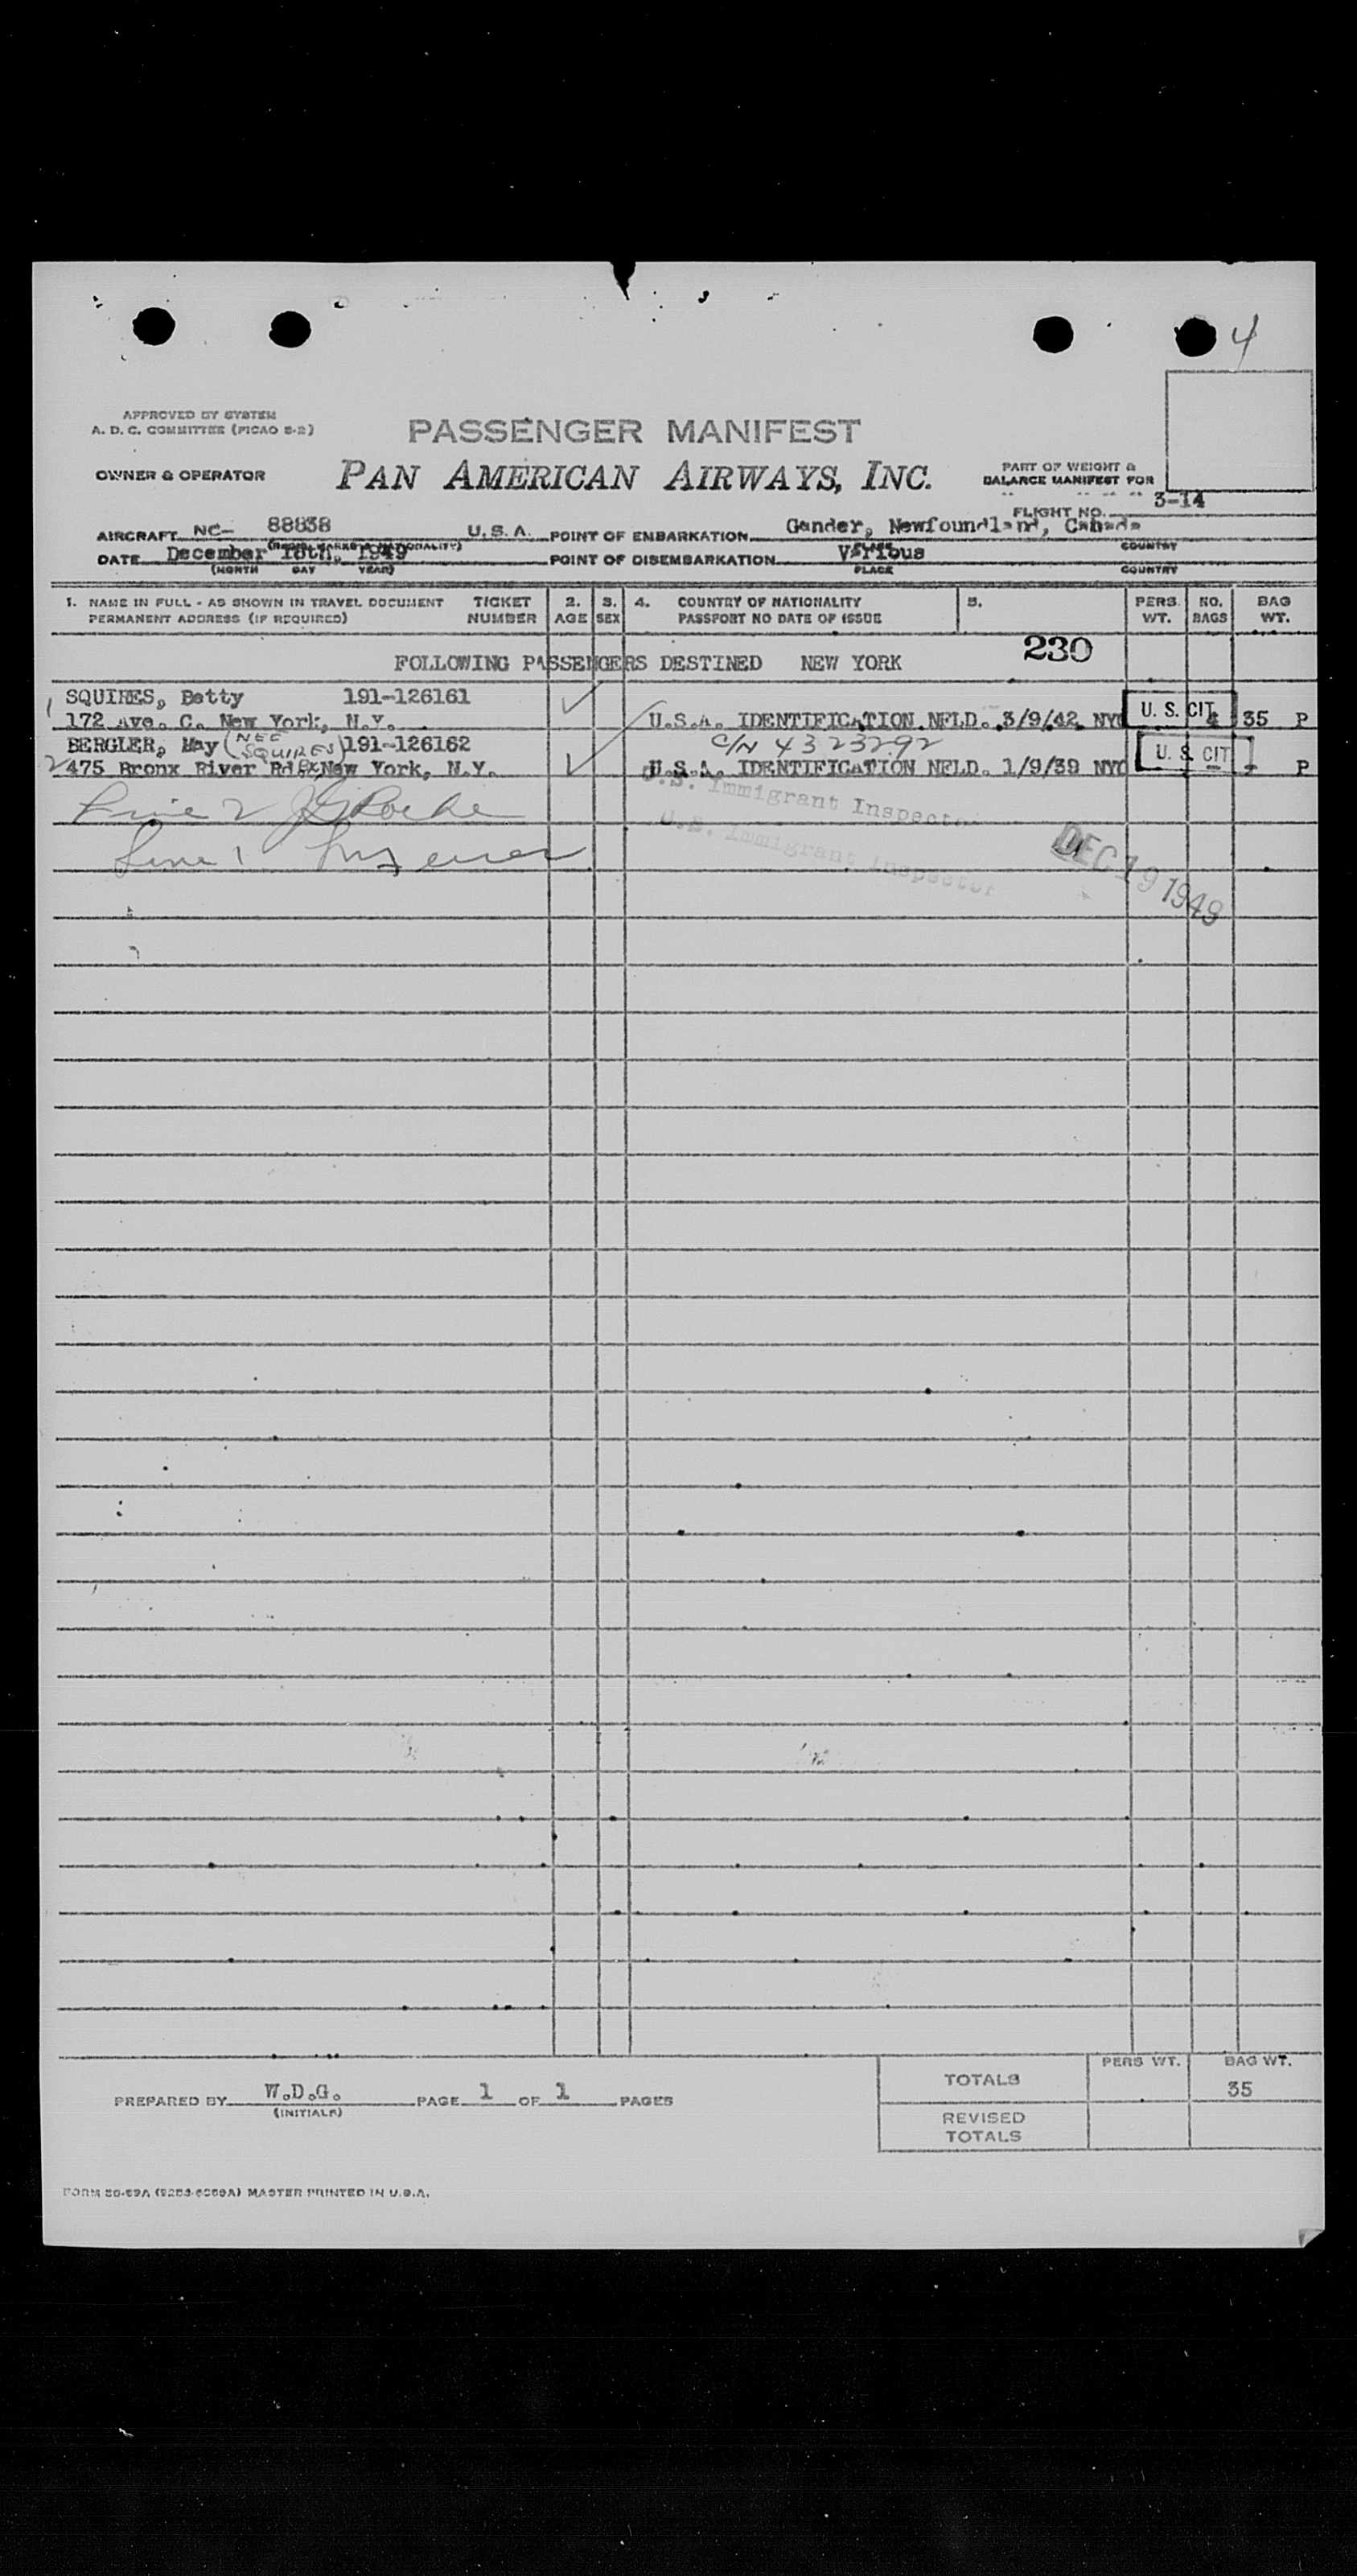 4
APPROVED BY SYSTEM
A. D. C. COMMITTEE (PICAO S-2)
PASSENGER MANIFEST
OWNER & OPERATOR
PAN AMERICAN AIRWAYS, INC.
PART OF WEIGHT &
BALANCE MANIFEST FOR
FLIGHT NO. 3-14
AIRCRAFT NC- 88838 U.S.A. POINT OF EMBARKATION Gander, Newfoundland, Canada
PLACE COUNTRY
DATE December 18th, 1949 POINT OF DISEMBARKATION Various
(MONTH DAY YEAR) PLACE COUNTRY
1. NAME IN FULL - AS SHOWN IN TRAVEL DOCUMENT TICKET 2. 3. 4. COUNTRY OF NATIONALITY 5. PERS. NO. BAG
PERMANENT ADDRESS (IF REQUIRED) NUMBER AGE SEX PASSPORT NO DATE OF ISSUE WT. BAGS WT.
FOLLOWING PASSENGERS DESTINED NEW YORK 230
1 SQUIRES, Betty 191-126161
172 Ave. C. New York, N.Y. U.S.A. IDENTIFICATION NFLD. 3/9/42 NYC U. S. CIT 35 P
BERGLER, May (NEE SQUIRES) 191-126162 C/N 4323292
2 475 Bronx River Rd Bx New York, N.Y. U.S.A. IDENTIFICATION NFLD. 1/9/39 NYC U. S. CIT - P
Line 2 J G Roche U.S. Immigrant Inspector
Line 1 U.S. Immigrant Inspector
DEC 19 1949
PREPARED BY W.D.G. PAGE 1 OF 1 PAGES
(INITIALS)
PERS WT. BAG WT.
TOTALS 35
REVISED
TOTALS
MASTER PRINTED IN U.S.A.